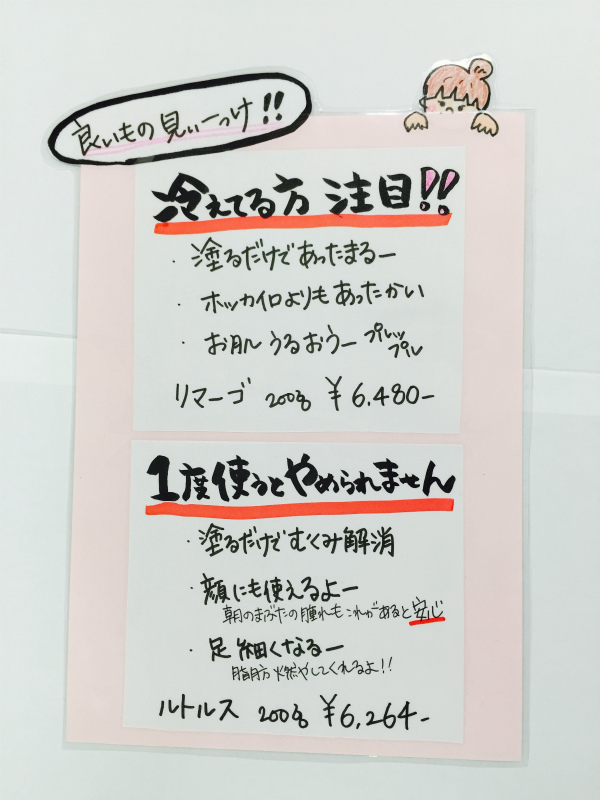 良いもの見ぃーっけ!!
冷えてる方 注目!!
・塗るだけであったまるー
・ホッカイロよりもあったかい
・お肌 うるおうー プルップル
リマーゴ 200g ¥6.480-
1度使うとやめられません
・塗るだけでむくみ解消
・顔にも使えるよー
朝のまぶたの腫れもこれがあると安心
・足 細くなるー
脂肪 燃やしてくれるよ!!
ルトルス 200g ¥6,264-